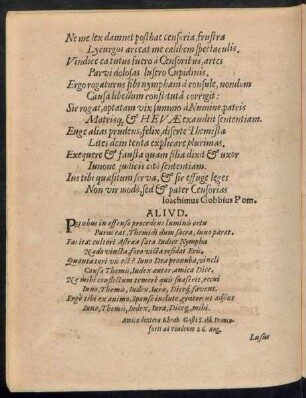 Ne me lex damnet posthac censoria, frustra
Lycurgus arceat me cælibem spectaculis.
Vindice ea tutus fuero à Censoribus, artes
Parvi dolosas lustro Cupidinis.
Ergo rogaturus sibi nympham à consule, nondum
Causa libellum constituta corrigit:
Sic rogat, optatam vix summo à Numine patris
Matrisq; & HEVÆ exaudiit sententiam.
Euge alias prudens, felix, diserte Themista
Lites dem tenta explicare plurimas.
Exequere & fausta quam filia dixit & uxor
Iunone judicis citò sententiam.
Ius tibi quæsitum serva, & sic effinge leges
Non vir modo, sed & pater Censorias
Ioachimus Gobbius Pom.
ALIVD.
Phœbus in offenso procedens luminis ortu
Purus eat, Themidi dum sacra, Iuno parat.
Fas ita: cultori Astrææ sata Iudice Nympha
Nodo vincta, foro victa resedat Ero.
Causa Themis, Index autor, amica Dice.
Iuno, Themis, Iudex, Iura, Diceq; favent.
Ergo tibi ex animo, Sponse inclute, grator ut adsint
Iuno, Themis, Index, Iura, Diceq; mihi.
Amica dextera Ehrab. Gosti S. dd. Francofurti
ad Viadrum 26. Aug.
Lusus